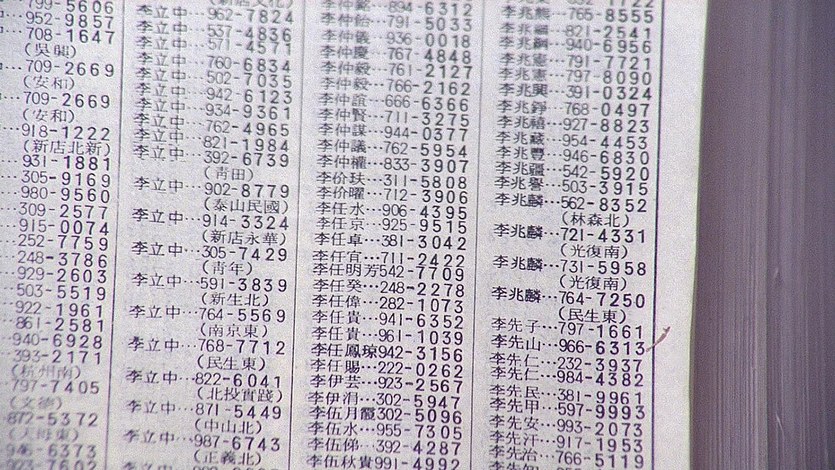 799-5606
952-9857
708-1647
(吳興)
709-2669
(安和)
709-2669
(安和)
918-1222
(新店北新)
931-1881
305-9169
980-9560
309-2577
915-0074
252-7759
248-3786
929-2603
503-5519
922-1961
861-2581
940-6928
393-2171
(杭州南)
797-7405
(文德)
872-5372
(天母東)
946-6373
923-7602
李立中…962-7824
李立中…537-4836
李立中…571-4571
李立中…760-6834
李立中…502-7035
李立中…942-6123
李立中…934-9361
李立中…762-4965
李立中…821-1984
李立中…392-6739
(青田)
李立中…902-8779
(泰山民國)
李立中…914-3324
(新店永華)
李立中…305-7429
(青年)
李立中…591-3839
(新生北)
李立中…764-5569
(南京東)
李立中…768-7712
(民生東)
李立中…822-6041
(北投實踐)
李立中…871-5449
(中山北)
李立中…987-6743
(正義北)
894-6312
李仲怡…791-5033
李仲儀…936-0018
李仲慶…767-4848
李仲毅…761-2127
李仲毅…766-2162
李仲誼…666-6366
李仲賢…711-3275
李仲謀…944-0377
李仲議…762-5954
李仲權…833-3907
李价玞…311-5808
李价曜…712-3906
李任水…906-4395
李任京…925-9515
李任卓…381-3042
李任宜…711-2422
李任明芳542-7709
李任癸…248-2278
李任偉…282-1073
李任貴…941-6352
李任貴…961-1039
李任鳳琼942-3156
李任賜…222-0262
李伊芸…923-2567
李伊涓…302-5947
李伍月霞302-5096
李伍水…955-7305
李伍俤…392-4287
李伍秋貴991-4992
李兆熊…765-8555
李兆福…821-2541
李兆鋼…940-6956
李兆憲…791-7721
李兆憲…797-8090
李兆興…391-0324
李兆錚…768-0497
李兆禧…927-8823
李兆藏…954-4453
李兆豐…946-6830
李兆疆…542-5920
李兆譽…503-3915
李兆麟…562-8352
(林森北)
李兆麟…721-4331
(光復南)
李兆麟…731-5958
(光復南)
李兆麟…764-7250
(民生東)
李先子…797-1661
李先山…966-6313
李先仁…232-3937
李先仁…984-4382
李先民…381-9961
李先甲…597-9993
李先安…993-2073
李先汗…917-1953
李先治…766-5119